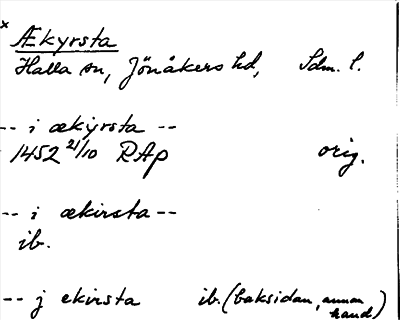 x
Ækyrsta
Halla sn, Jönåkers hd, Sdm. l.
-- i ækyrsta --
1452 21/10 RAp orig.
-- i ækirsta --
ib.
-- j ekirsta ib. (baksidan, annan
hand)